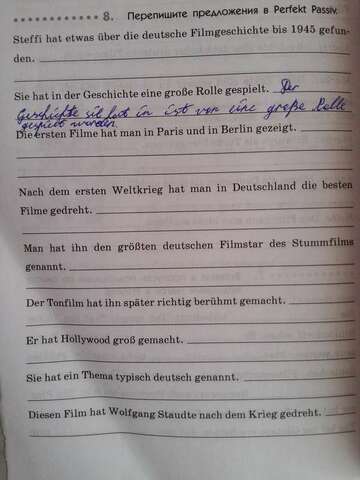 8. Перепишите предложения в Perfekt Passiv.
Steffi hat etwas über die deutsche Filmgeschichte bis 1945 gefun-
den.
Sie hat in der Geschichte eine große Rolle gespielt. Der
Geschichte sie hat in ist von eine große Rolle
gespielt worden.
Die ersten Filme hat man in Paris und in Berlin gezeigt.
Nach dem ersten Weltkrieg hat man in Deutschland die besten
Filme gedreht.
Man hat ihn den größten deutschen Filmstar des Stummfilms
genannt.
Der Tonfilm hat ihn später richtig berühmt gemacht.
Er hat Hollywood groß gemacht.
Sie hat ein Thema typisch deutsch genannt.
Diesen Film hat Wolfgang Staudte nach dem Krieg gedreht.